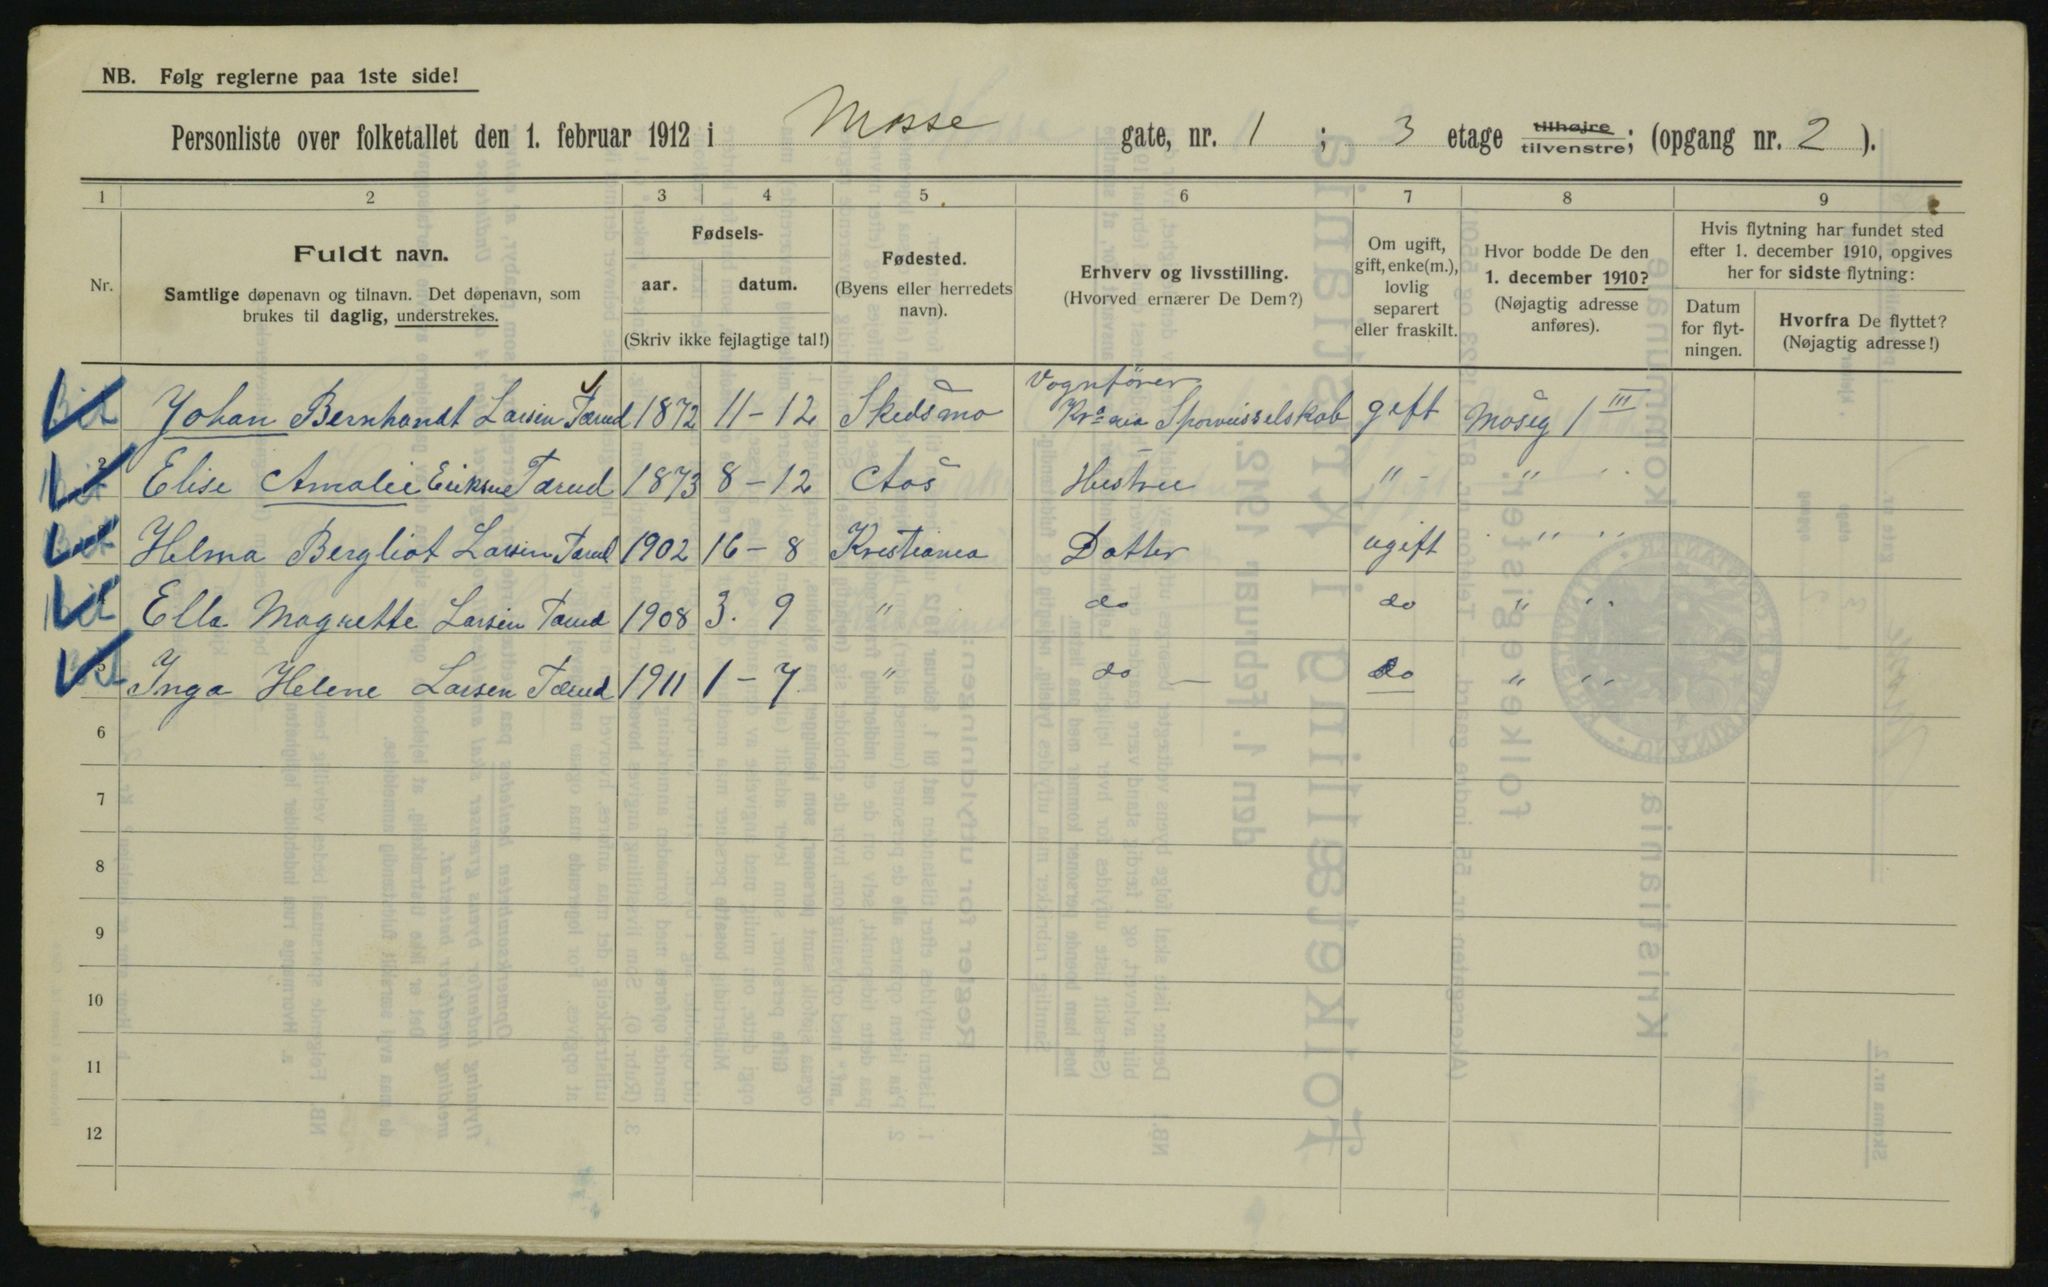 NB. Følg reglerne paa 1ste side!
Personliste over folketallet den 1. februar 1912 i Mosse gate, nr. 1 ; 3 etage tilhøjre tilvenstre; (opgang nr. 2 ).
1 2 3 4 5 6 7 8 9
Nr.
Fuldt navn.
Samtlige døpenavn og tilnavn. Det døpenavn, som
brukes til daglig, understrekes.
Fødsels-
aar. datum.
(Skriv ikke fejlagtige tal!)
Fødested.
(Byens eller herredets
navn).
Erhverv og livsstilling.
(Hvorved ernærer De Dem?)
Om ugift,
gift, enke(m.),
lovlig
separert
eller fraskilt.
Hvor bodde De den
1. december 1910?
(Nøjagtig adresse
anføres).
Hvis flytning har fundet sted
efter 1. december 1910, opgives
her for sidste flytning:
Datum
for flyt-
ningen.
Hvorfra De flyttet?
(Nøjagtig adresse!)
Vognfører
Johan Bernhardt Larsen Tærud 1872 11-12 Skedsmo Kra Sporveisselskab gift Mosseg 1 III
Elise Amalie Eriksen Tærud 1873 8-12 Aas Hustru " - " "
Helma Bergliot Larsen Tærud 1902 16-8 Kristiania Datter ugift " "
Ella Magrethe Larsen Tærud 1908 3. 9 " do do " "
5 Inga Helene Larsen Tærud 1911 1-7 " do — do " "
6
7
8
9
10
11
12